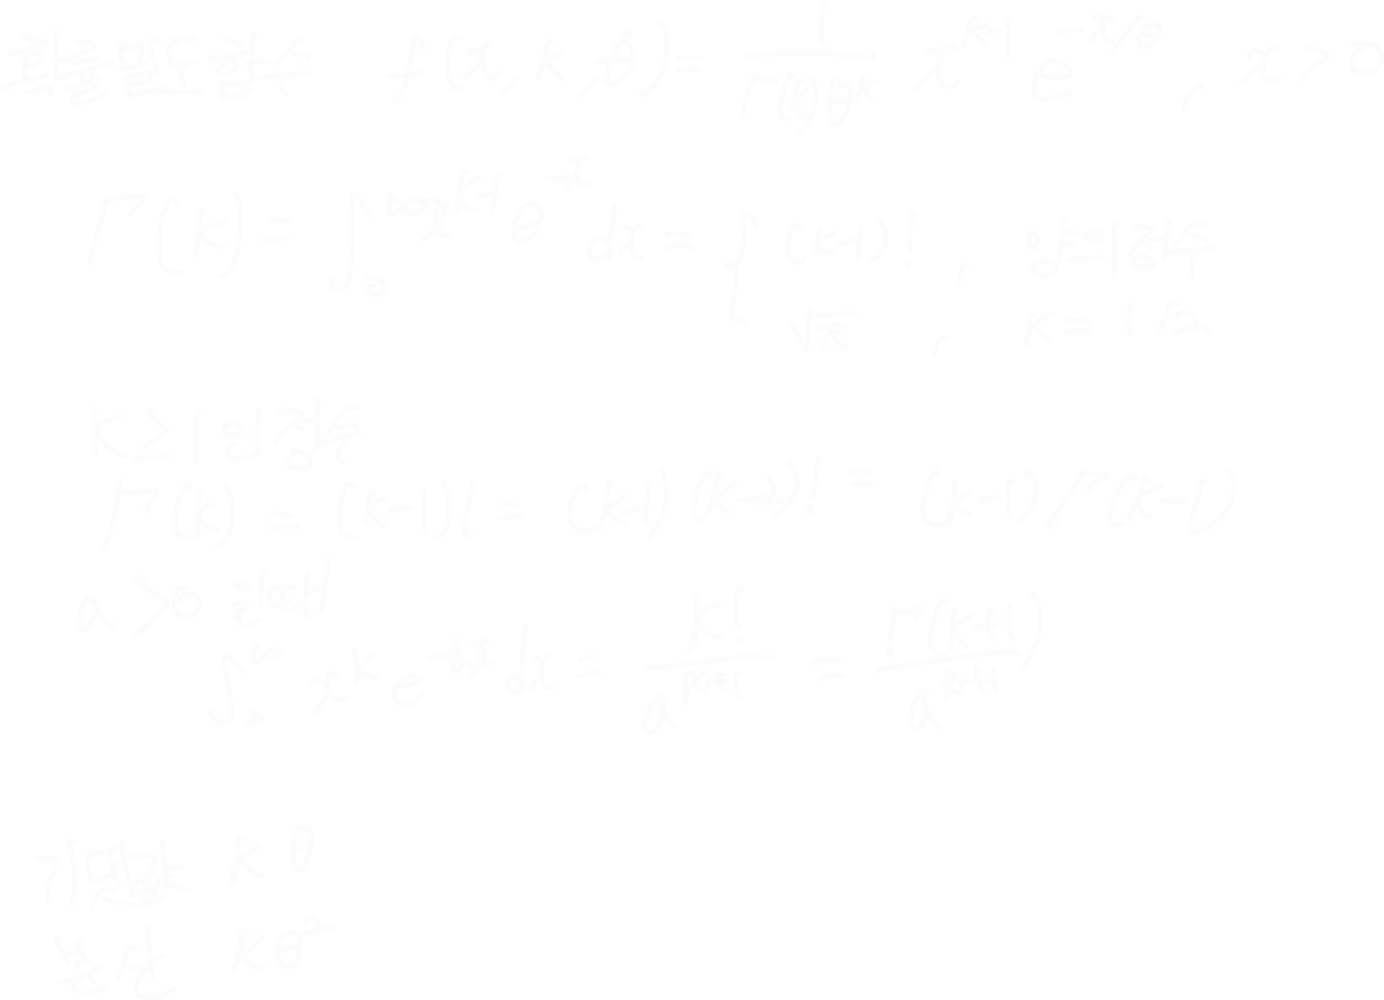 확률밀도함수 f(x, k, θ) = 1/(Γ(k)θ^k) x^(k-1) e^(-x/θ), x > 0
Γ(k) = ∫_0^∞ x^(k-1) e^(-x) dx = { (k-1)!, 양의정수
√π, k = 1/2
k ≥ 1인 정수
Γ(k) = (k-1)! = (k-1)(k-2)! = (k-1)Γ(k-1)
a > 0 일때
∫_0^∞ x^k e^(-ax) dx = k!/a^(k+1) = Γ(k+1)/a^(k+1)
기댓값 kθ
분산 kθ²